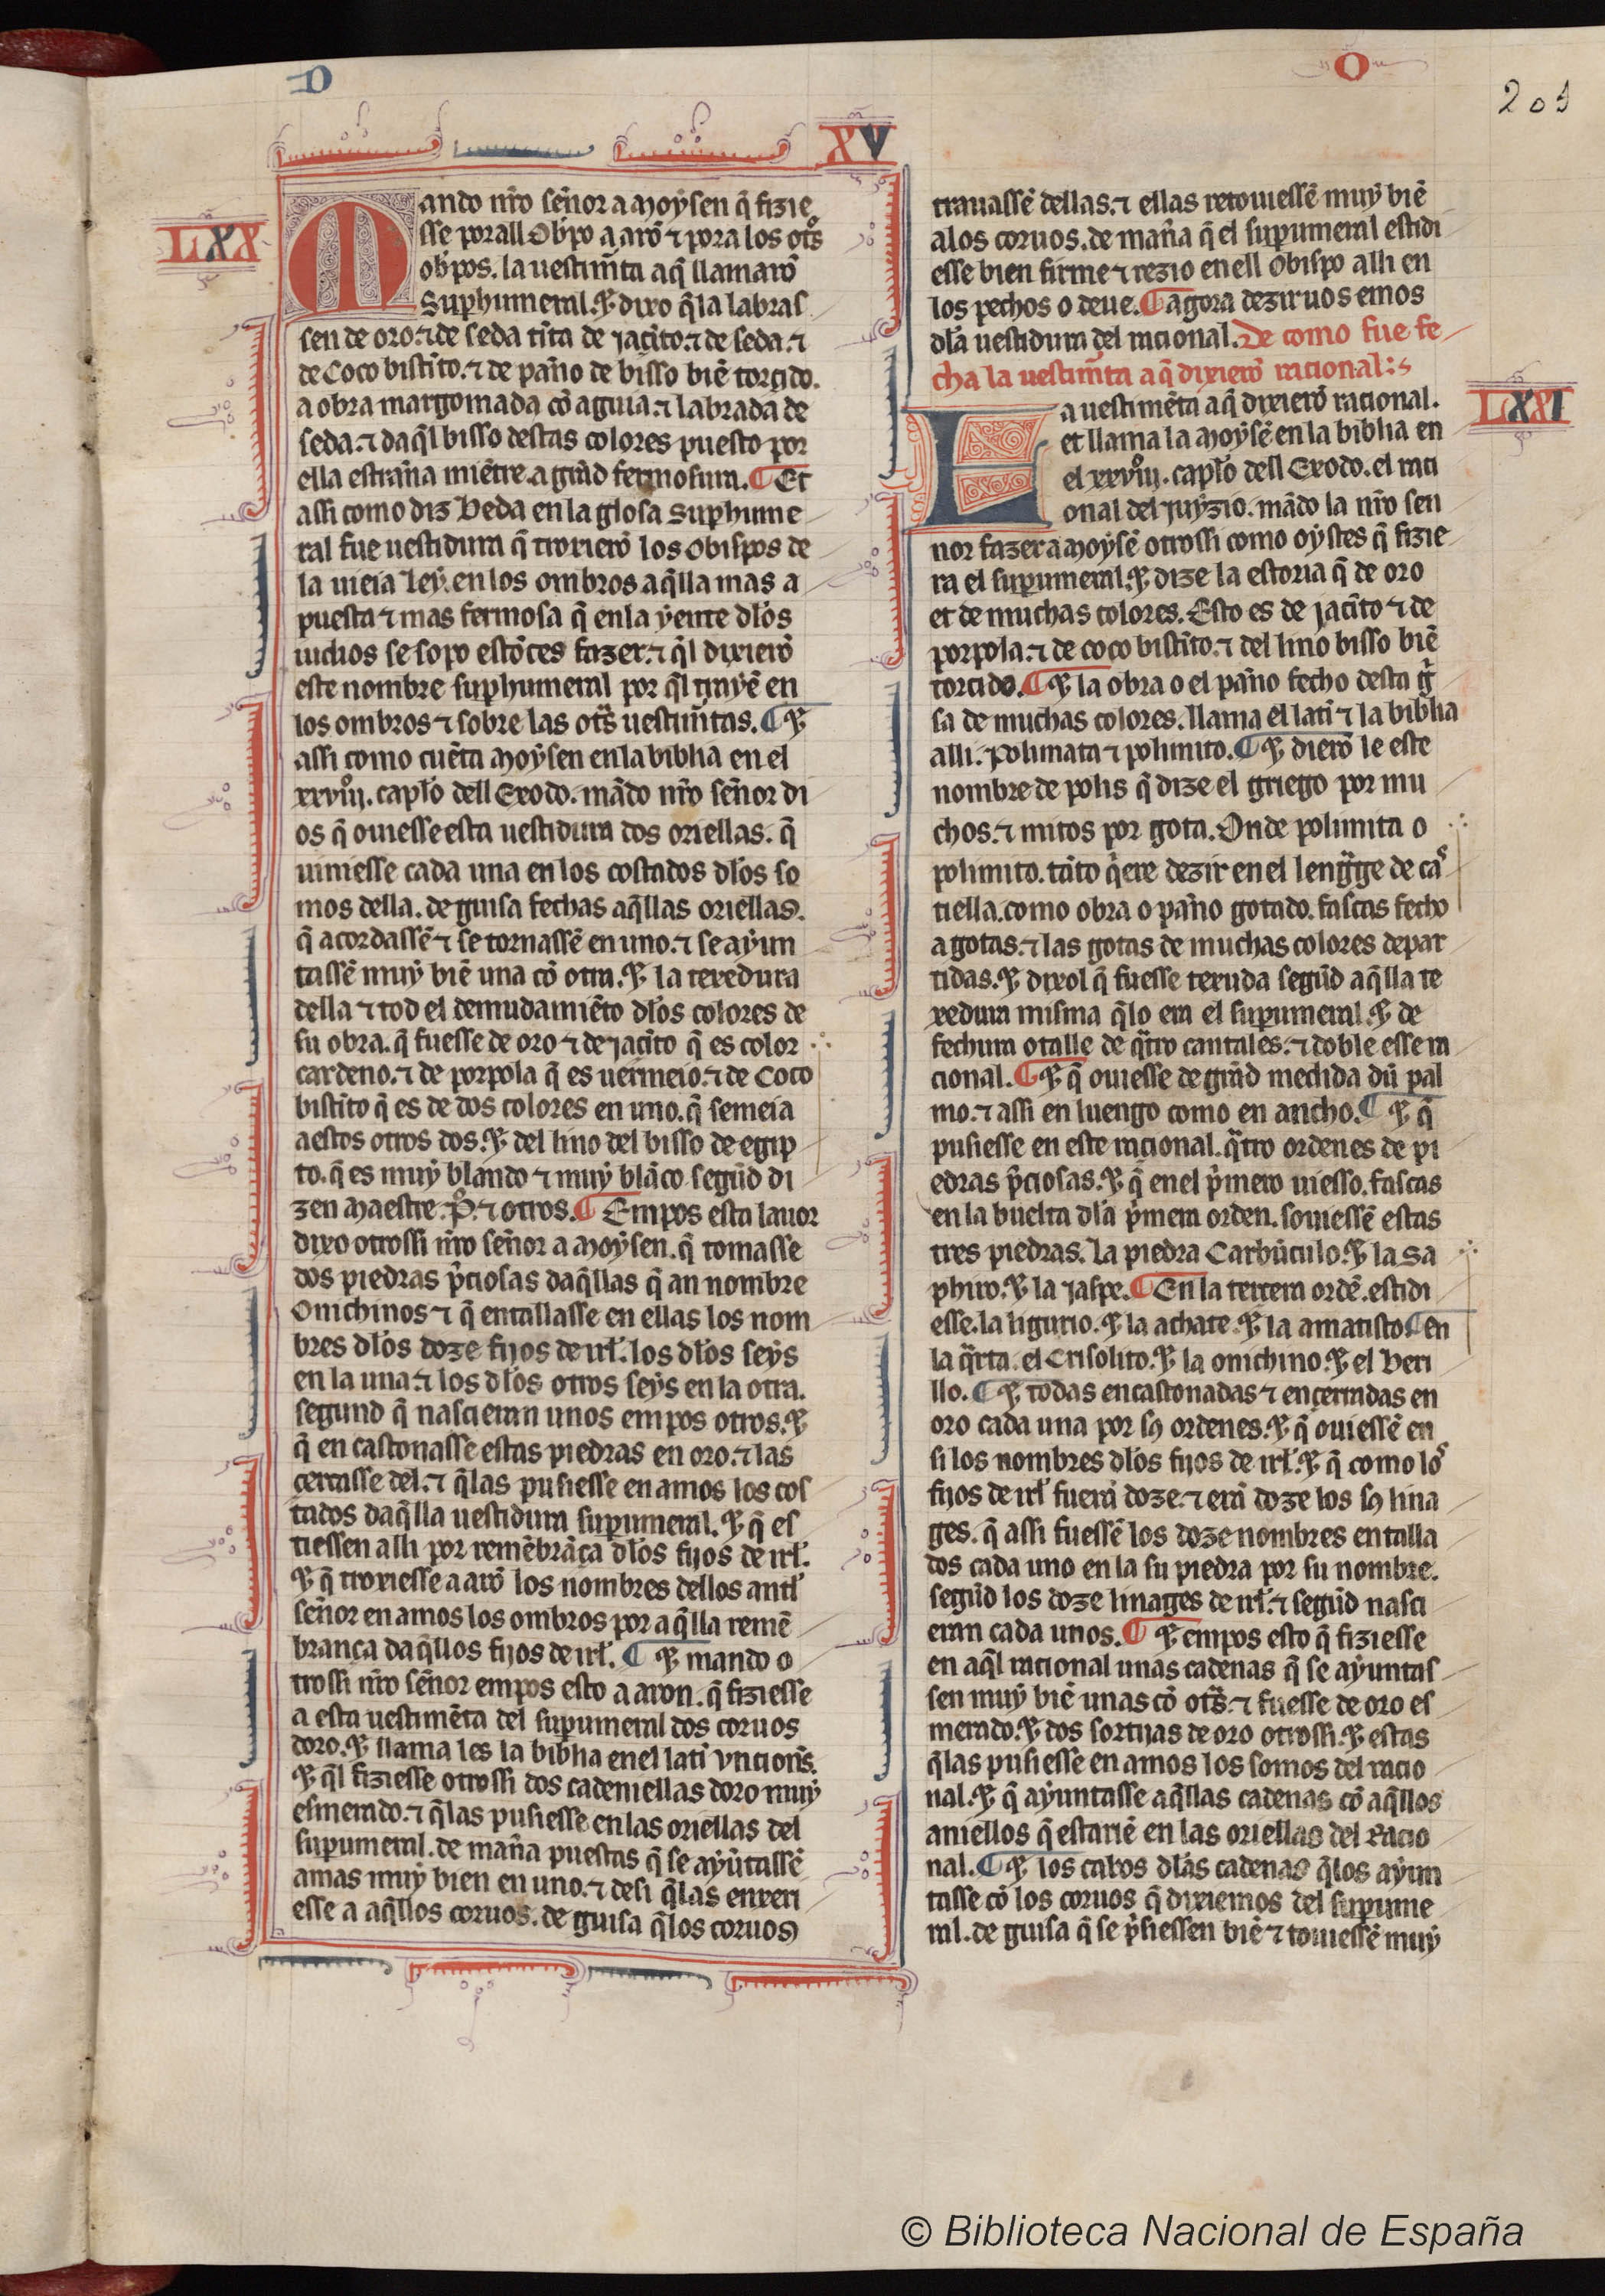 D
O
205
XV
LXX
Mando nr̃o señor a moẏsen q̃ fizie
sse porall Ob̃po a aarõ ⁊ pora los otͦs
ob̃pos. la uestim̃ta aq̃ llamarõ
Suphumeral. ⁊ dixo q̃ la labras
sen de oro. ⁊ de seda tĩta de jaçĩto. ⁊ de seda. ⁊
de Coco bistĩto. ⁊ de paño de bisso biẽ torçido.
a obra margomada cõ aguia. ⁊ labrada de
seda. ⁊ daq̃l bisso destas colores puesto por
ella estraña miẽtre. a grãd fermosura. ¶ Et
assi como diz Beda en la glosa Suphume
ral fue uestidura q̃ troxierõ los Obispos de
la uieia leẏ. en los ombros aq̃lla mas a
puesta ⁊ mas fermosa q̃ en la ẏente dl̃os
iudios se sopo estõçes fazer. ⁊ q̃l dixierõ
este nombre suphumeral por q̃l trayẽ en
los ombros ⁊ sobre las otr̃s uestim̃tas. ¶ ⁊
assi como cuẽta moẏsen en la biblia en el
xxviijͦ. capl̃o dell Exodo. mãdo nr̃o señor di
os q̃ ouiesse esta uestidura dos oriellas. q̃
uiniesse cada una en los costados dl̃os so
mos della. de guisa fechas aq̃llas oriellas.
q̃ acordassẽ ⁊ se tornassẽ en uno. ⁊ se aẏun
tassẽ muẏ biẽ una cõ otra. ⁊ la texedura
della ⁊ tod el demudamiẽto dl̃os colores de
su obra. q̃ fuesse de oro ⁊ de jaçĩto q̃ es color
cardeno. ⁊ de porpola q̃ es uermeio. ⁊ de Coco
bistĩto q̃ es de dos colores en uno. q̃ semeia
a estos otros dos. ⁊ del lino del bisso de egip
to. q̃ es muẏ blando ⁊ muẏ blãco segũd di
zen maestre .Pͦ. ⁊ otros. ¶ Empos esta lauor
dixo otrossi nr̃o señor a moẏsen. q̃ tomasse
dos piedras p̃ciosas daq̃llas q̃ an nombre
Onichinos ⁊ q̃ entallasse en ellas los nom
bres dl̃os doze fijos de irl̃. los dl̃os seẏs
en la una. ⁊ los dl̃os otros seẏs en la otra.
segund q̃ nascieran unos empos otros. ⁊
q̃ en castonasse estas piedras en oro. ⁊ las
çercasse del. ⁊ q̃las pusiesse en amos los cos
tados daq̃lla uestidura supumeral. ⁊ q̃ es
tiessen alli por remẽbrãça dl̃os fijos de irl̃.
⁊ q̃ troxiesse a arõ los nombres dellos antl̃
señor en amos los ombros por aq̃lla remẽ
brança daq̃llos fijos de irl̃. ¶ ⁊ mando o
trossi nr̃o señor empos esto a aron. q̃ fiziesse
a esta uestimẽta del supumeral dos coruos
doro. ⁊ llama les la biblia en el latĩ vncion̄s.
⁊ q̃l fiziesse otrossi dos cadeniellas doro muẏ
esmerado. ⁊ q̃las pusiesse en las oriellas del
supumeral. de maña puestas q̃ se aẏũtassẽ
amas muẏ bien en uno. ⁊ desi q̃las enxeri
esse a aq̃llos coruos. de guisa q̃los coruos
trauassẽ dellas. ⁊ ellas retouiessẽ muẏ biẽ
a los coruos. de maña q̃ el supumeral estidi
esse bien firme ⁊ rezio en ell obispo alli en
los pechos o deue. ¶ agora deziruos emos
dl̃a uestidura del racional. De como fue fe
cha la uestim̃ta a q̃ dixierõ racional:
LXXI
La uestimẽta aq̃ dixierõ racional.
et llama la moẏsẽ en la biblia en
el xxviijͦ. capl̃o dell Exodo. el raci
onal del juẏzio. mãdo la nr̃o sen
nor fazer a moẏsẽ otrossi como oẏstes q̃ fizie
ra el supumeral. ⁊ dize la estoria q̃ de oro
et de muchas colores. Esto es de jacĩto ⁊ de
porpola. ⁊ de coco bistĩto. ⁊ del lino bisso biẽ
torcido. ¶ ⁊ la obra o el paño fecho desta g̃
sa de muchas colores. llama el latĩ ⁊ la biblia
alli. Polimata ⁊ polimito. ¶ ⁊ dierõ le este
nombre de polis q̃ dize el griego por mu
chos. ⁊ mitos por gota. Onde polimita o
polimito. tãto q̃ere dezir en el lengᷓge de cas
tiella. como obra o paño gotado. fascas fecho
a gotas. ⁊ las gotas de muchas colores depar
tidas. ⁊ dixol q̃ fuesse texuda segũd aq̃lla te
xedura misma q̃lo era el supumeral. ⁊ de
fechura o talle de qᷓtro cantales. ⁊ doble esse ra
cional. ¶ ⁊ q̃ ouiesse de grãd medida dũ pal
mo. ⁊ assi en luengo como en ancho. ¶ ⁊ q̃
pusiesse en este racional. qᷓtro ordenes de pi
edras p̃ciosas. ⁊ q̃ en el p̃mero uiesso. fascas
en la buelta dl̃a p̃mera orden. souiessẽ estas
tres piedras. la piedra Carbũculo. ⁊ la Sa
phiro. ⁊ la jaspe. ¶ En la tercera ordẽ. estidi
esse. la ligurio. ⁊ la achate. ⁊ la amatisto ¶ en
la qᷓrta. el Crisolito. ⁊ la onichino. ⁊ el Beri
llo. ¶ ⁊ todas encastonadas ⁊ ençerradas en
oro cada una por sꝯ ordenes. ⁊ q̃ ouiessẽ en
si los nombres dl̃os fijos de irl̃. ⁊ q̃ como los
fijos de irl̃ fuerã doze. ⁊ erã doze los sꝯ lina
ges. q̃ assi fuessẽ los doze nombres entalla
dos cada uno en la su piedra por su nombre.
segũd los doze linages de irl̃. ⁊ segũd nasci
eran cada unos. ¶ ⁊ empos esto q̃ fiziesse
en aq̃l racional unas cadenas q̃ se aẏuntas
sen muẏ biẽ unas cõ otr̃s. ⁊ fuesse de oro es
merado. ⁊ dos sortijas de oro otrossi. ⁊ estas
q̃las pusiesse en amos los somos del racio
nal. ⁊ q̃ aẏuntasse aq̃llas cadenas cõ aq̃llos
aniellos q̃ estariẽ en las oriellas del Racio
nal. ¶ ⁊ los cabos dl̃as cadenas q̃los aẏun
tasse cõ los coruos q̃ dixiemos del supume
ral. de guisa q̃ se p̃siessen biẽ ⁊ touiessẽ muẏ
© Biblioteca Nacional de España